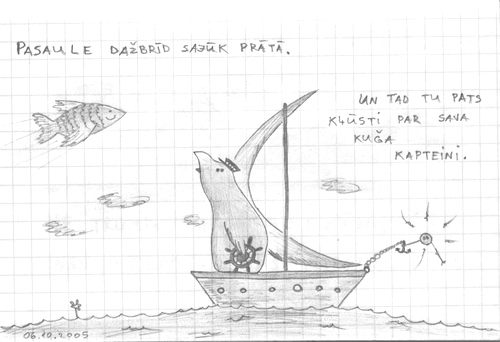 PASAULE DAŽBRĪD SAJŪK PRĀTĀ.
UN TAD TU PATS
KĻŪSTI PAR SAVA
KUĢA
KAPTEINI.
06.10.2005